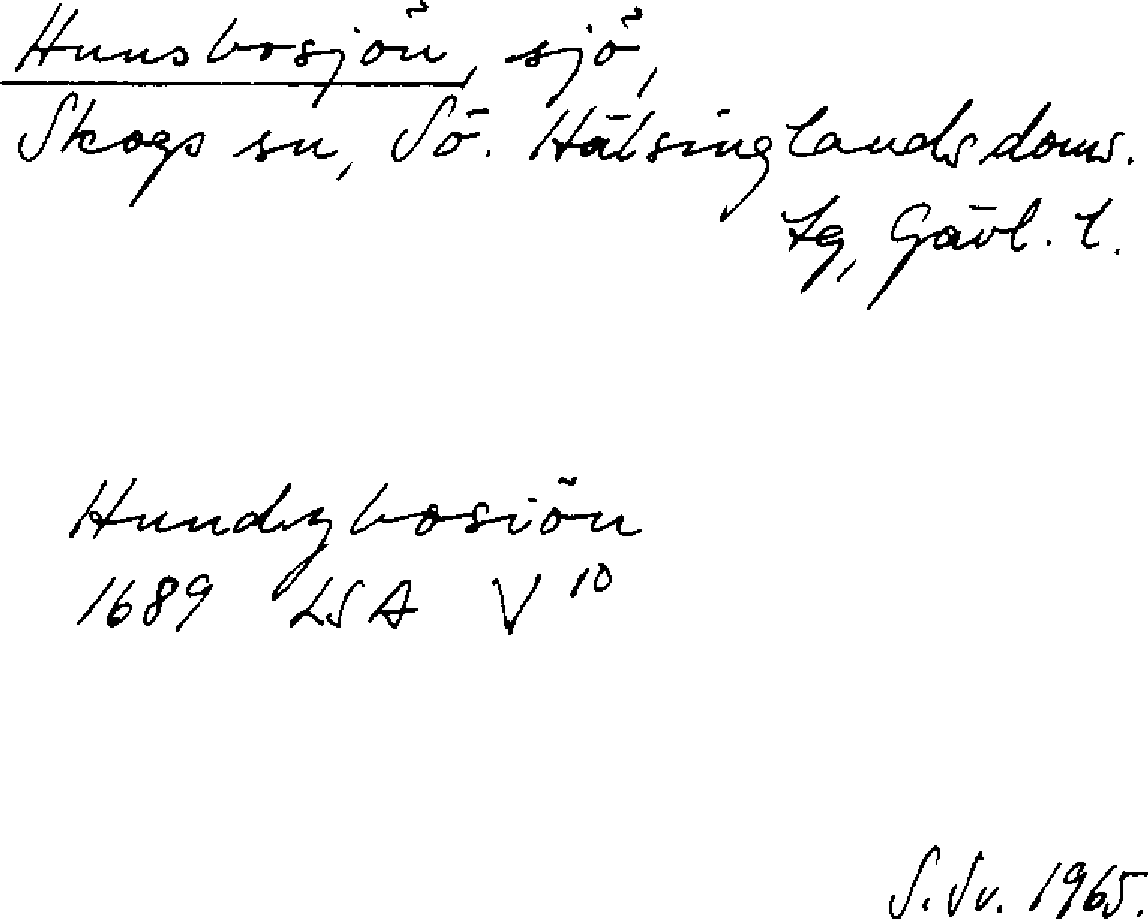 Hunsbosjön, sjö,
Skogs sn, Sö. Hälsinglands doms.
tg, Gävl. l.
Hundzbosiön
1689 LSA V 10
S. Sv. 1965.